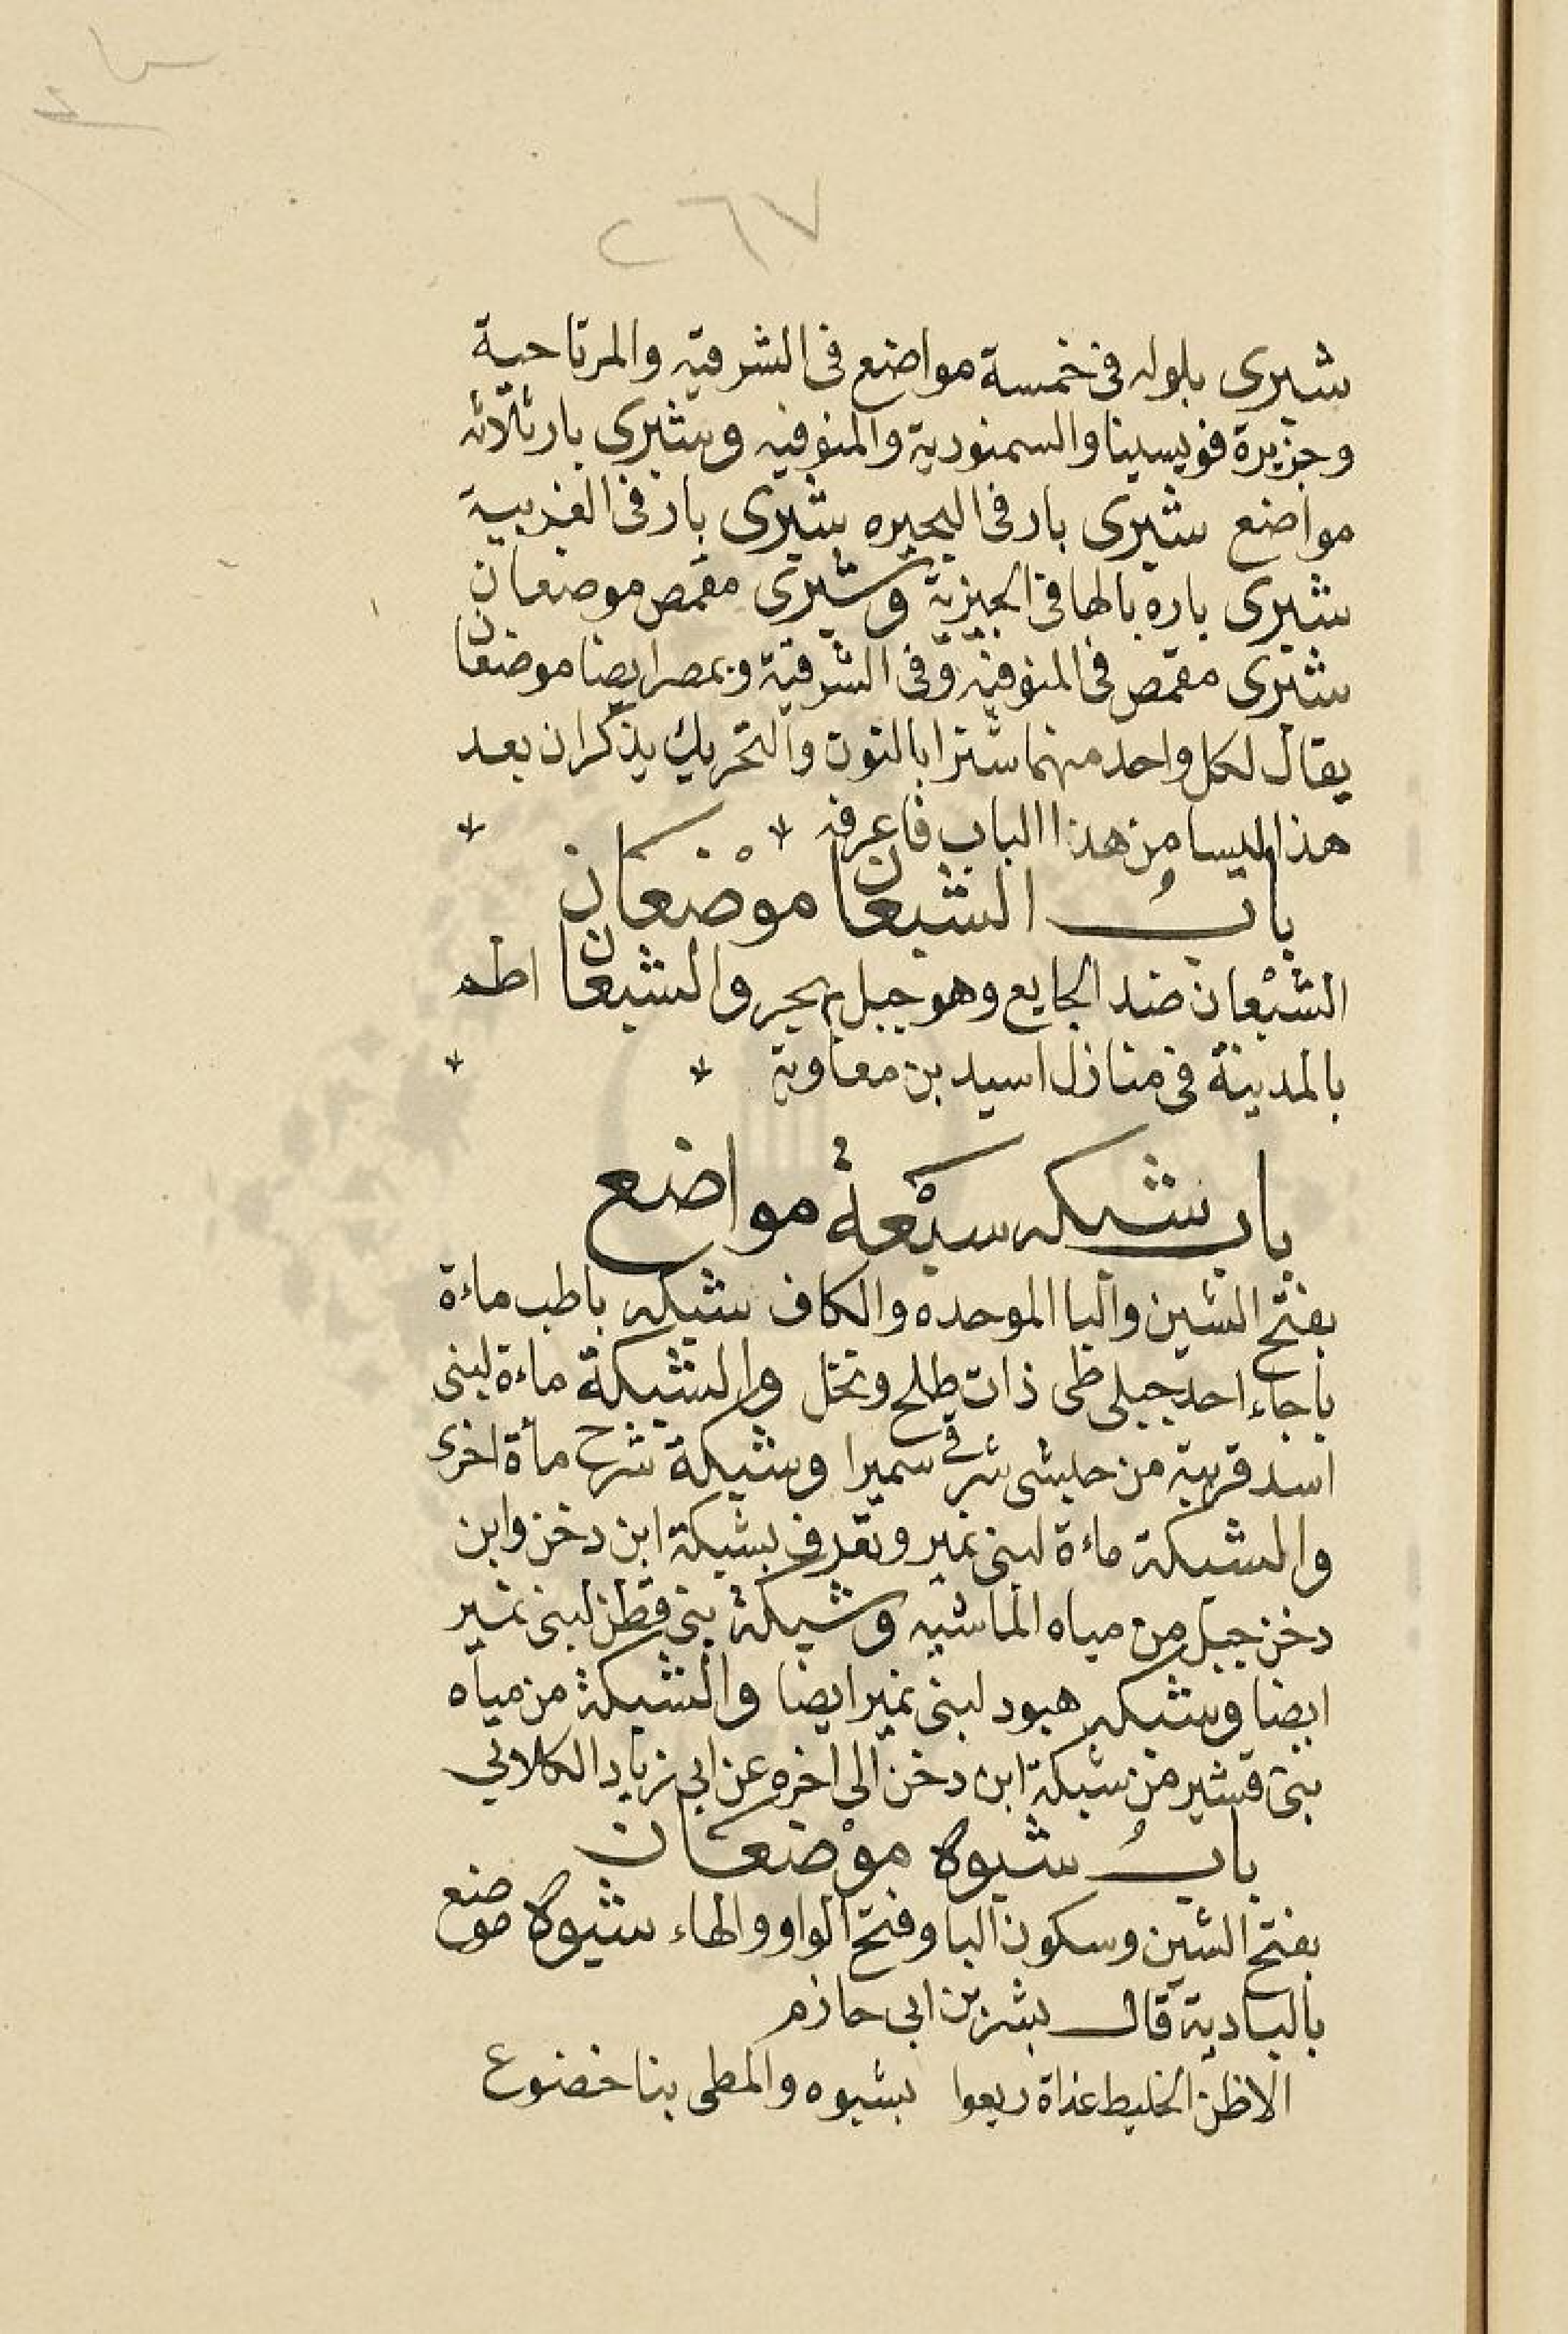 ٢٦٧
شبرى بلوله فى خمسة مواضع فى الشرقيه والمرتاحية
وجزيرة قويسينا والسمنودية والمنوفيه وشبرى بار ثلاثه
مواضع شبرى بار فى البحيره شبرى بار فى الغربية
شبرى باره بالها فى الجيزية وشبرى مقمص موضعان
شبرى مقمص فى المنوفيه وفى الشرقية وبمصر ايضا موضعان
يقال لكل واحد منهما شنرا بالنون والتحريك يذكران بعد
هذا ليسا من هذا الباب فاعرفه
باب الشبعان موضعان
الشبعان ضد الجايع وهو جبل بهجر والشبعان اطم
بالمدينة فى منازل اسيد بن معاوية
باب شبكه سبعة مواضع
بفتح الشين والبا الموحده والكاف شبكه باطب ماءة
باجاء احد جبلى طى ذات طلح ونخل والشبكة ماءة لبنى
اسد قريبة من حبشى شرقى سميرا وشبكة شرح مأة اخرى
والشبكة ماءة لبنى نمير وتعرف بشبكة ابن دخن وابن
دخن جبل من مياه الماشيه وشبكة بنى قطن لبنى نمير
ايضا وشبكه هبود لبنى نمير ايضا والشبكة من مياه
بنى قشير من شبكة ابن دخن الى اخره عن ابى زياد الكلابي
باب شبوه موضعان
بفتح الشين وسكون البا وفتح الواو والهاء شبوه موضع
بالبادية قال بشر بن ابى حازم
الا ظن الخليط غداة ريعوا بشبوه والمطى بنا خضوع